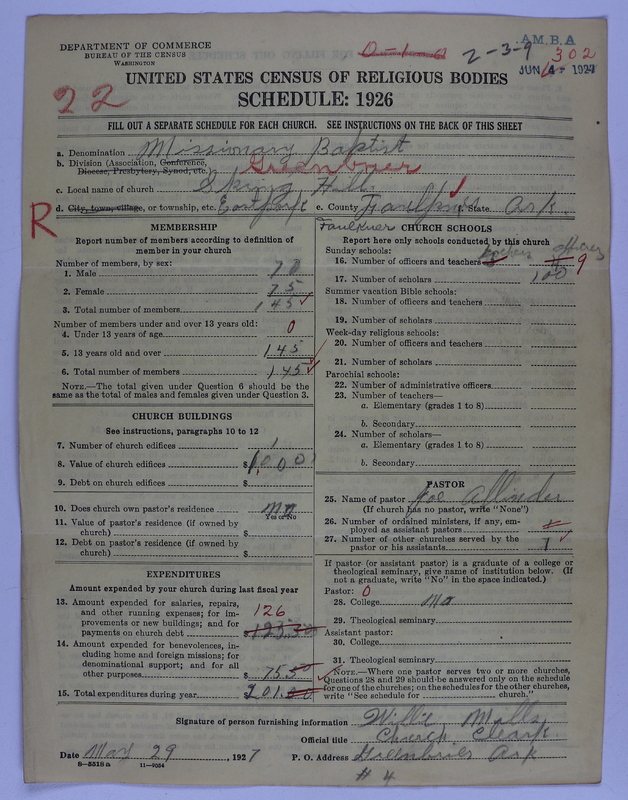 DEPARTMENT OF COMMERCE
BUREAU OF THE CENSUS
WASHINGTON
0-1-0
2-3-9
A.M.B.A
302
JUN 4- 1927
22
UNITED STATES CENSUS OF RELIGIOUS BODIES
SCHEDULE: 1926
FILL OUT A SEPARATE SCHEDULE FOR EACH CHURCH. SEE INSTRUCTIONS ON THE BACK OF THIS SHEET
a. Denomination Missionary Baptist
b. Division (Association, Conference, Diocese, Presbytery, Synod, etc.) Greenbrier
c. Local name of church Spring Hill
d. City, town, village, or township, etc. Eastfork e. County Faulkner f. State Ark.
R
MEMBERSHIP
Report number of members according to definition of
member in your church
Number of members, by sex:
1. Male 70
2. Female 75
3. Total number of members 145
Number of members under and over 13 years old:
4. Under 13 years of age 0
5. 13 years old and over 145
6. Total number of members 145
NOTE.—The total given under Question 6 should be the
same as the total of males and females given under Question 3.
CHURCH BUILDINGS
See instructions, paragraphs 10 to 12
7. Number of church edifices 1
8. Value of church edifices $1000
9. Debt on church edifices $
10. Does church own pastor's residence no
Yes or No
11. Value of pastor's residence (if owned by
church) $
12. Debt on pastor's residence (if owned by
church) $
EXPENDITURES
Amount expended by your church during last fiscal year
13. Amount expended for salaries, repairs,
and other running expenses; for im-
provements or new buildings; and for
payments on church debt 126
14. Amount expended for benevolences, in-
cluding home and foreign missions; for
denominational support; and for all
other purposes $ 75.50
15. Total expenditures during year 201.00
Faulkner CHURCH SCHOOLS
Report here only schools conducted by this church
Sunday schools: officers
16. Number of officers and teachers 9
17. Number of scholars 100
Summer vacation Bible schools:
18. Number of officers and teachers
19. Number of scholars
Week-day religious schools:
20. Number of officers and teachers
21. Number of scholars
Parochial schools:
22. Number of administrative officers
23. Number of teachers—
a. Elementary (grades 1 to 8)
b. Secondary
24. Number of scholars—
a. Elementary (grades 1 to 8)
b. Secondary
PASTOR
25. Name of pastor Joe Allinder
(If church has no pastor, write "None")
26. Number of ordained ministers, if any, em-
ployed as assistant pastors
27. Number of other churches served by the
pastor or his assistants 1
If pastor (or assistant pastor) is a graduate of a college or
theological seminary, give name of institution below. (If
not a graduate, write "No" in the space indicated.)
Pastor: 0
28. College no
29. Theological seminary
Assistant pastor:
30. College
31. Theological seminary
NOTE.—Where one pastor serves two or more churches,
Questions 28 and 29 should be answered only on the schedule
for one of the churches; on the schedules for the other churches,
write "See schedule for church."
Signature of person furnishing information Willie Mills
Official title Church Clerk.
Date Mar 29, 1927 P. O. Address Greenbrier Ark
8-5518a 11-9034
# 4